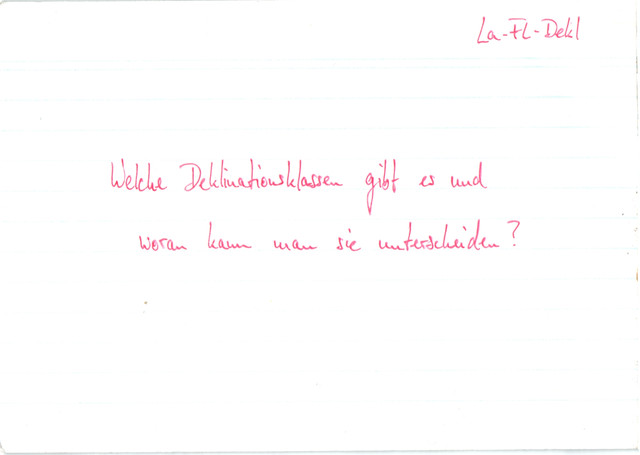 La-FL-Dekl
Welche Deklinationsklassen gibt es und
woran kann man sie unterscheiden?